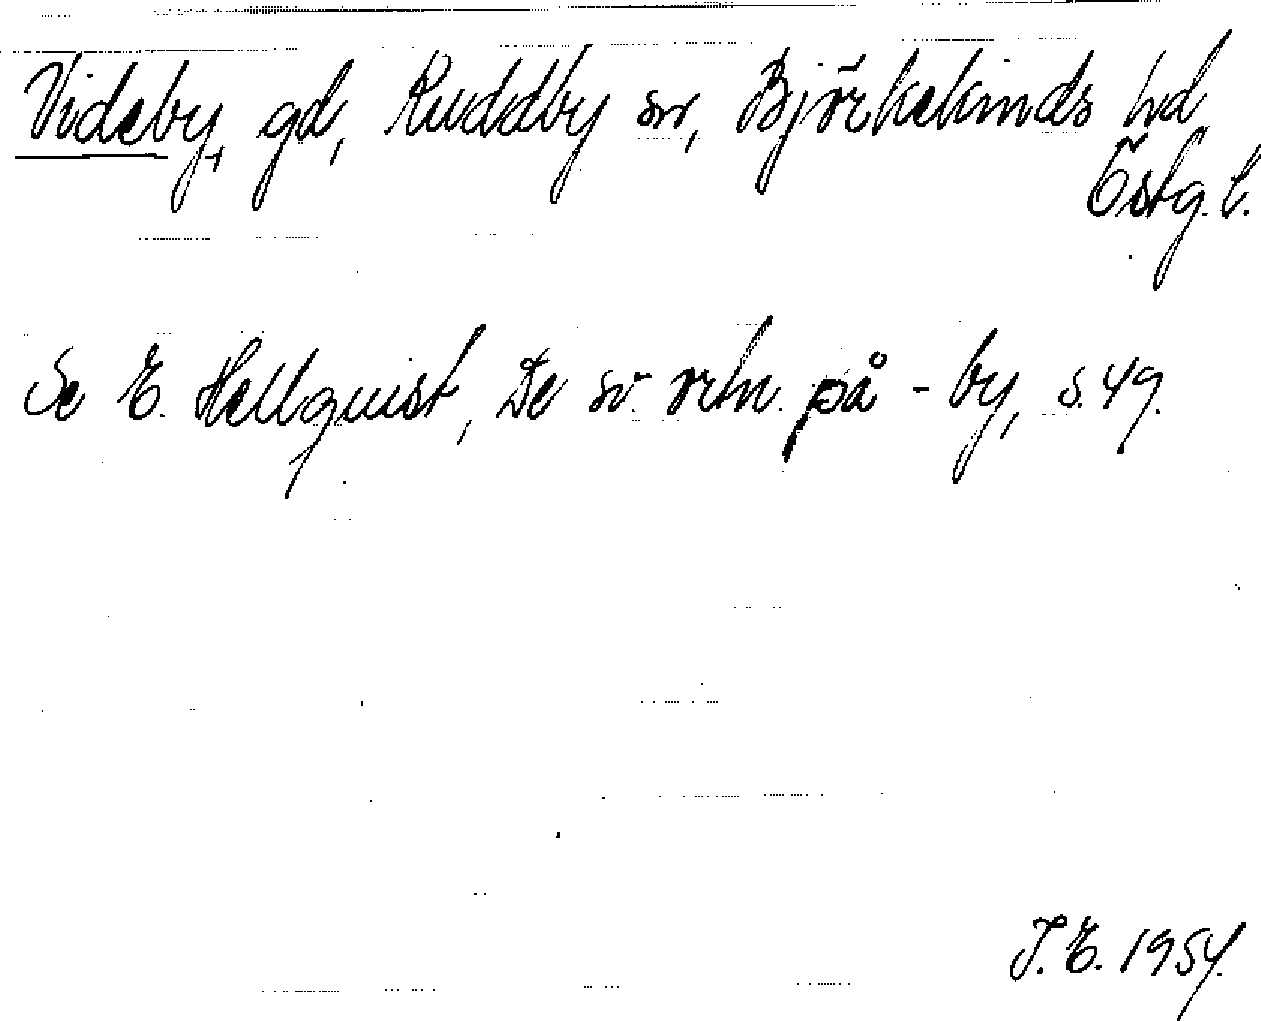 Videby, gd, Kuddby sn, Björkekinds hd
Östg. l.
Se E. Hellquist, De sv. ortn. på -by, s. 49.
J. E. 1954.